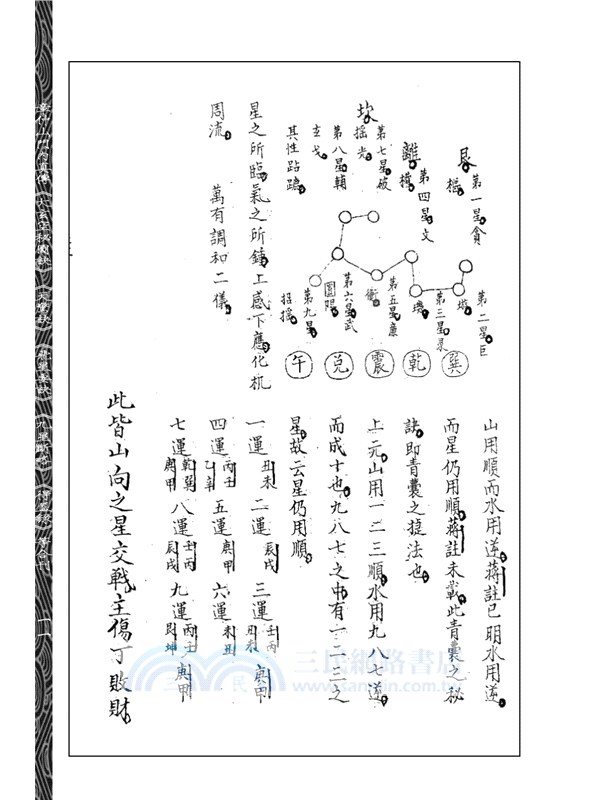 艮 第一星貪
樞
第二星巨
璇
巽
離 第四星文
權
第三星彔
璣
乾
第五星廉
衡
震
坎 第七星破
搖光
第六星武
闓陽
兌
第八星輔
玄戈
第九星
招搖
午
其性跕躡
星之所臨氣之所鍾上感下應化机
周流 萬有調和二儀
山用順而水用逆蔣註已明水用逆
而星仍用順蔣註未載此青囊之秘
訣即青囊之捷法也
上元山用一二三順水用九八七逆
而成十也九八七之中有一二三之
星故云星仍用順
一運 丑未 二運 辰戌 三運 壬丙 丑未 庚甲
四運 丙壬 乙辛 五運 庚甲 六運 未丑
七運 乾巽 庚甲 八運 壬丙 辰戌 九運 丙壬 艮坤 庚甲
此皆山向之星交戰主傷丁敗財
三民網路書店
www.sanmin.com.tw